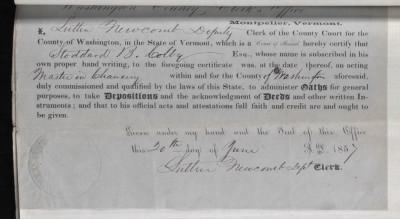 Clerk's Office
Montpelier, Vermont.
I, Luther Newcomb Deputy Clerk of the County Court for the
County of Washington, in the State of Vermont, which is a Court of Record hereby certify that
Stoddard B. Colby Esq., whose name is subscribed in his
own proper hand writing, to the foregoing certificate was, at the date thereof, an acting
Master in Chancery within and for the County of Washington aforesaid,
duly commissioned and qualified by the laws of this State, to administer Oaths for general
purposes, to take Depositions and the acknowledgment of Deeds and other written In-
struments; and that to his official acts and attestations full faith and credit are and ought to
be given.
Given under my hand and the Seal of this Office
this 20th day of June A.D. 1857
Luther Newcomb Dept Clerk.